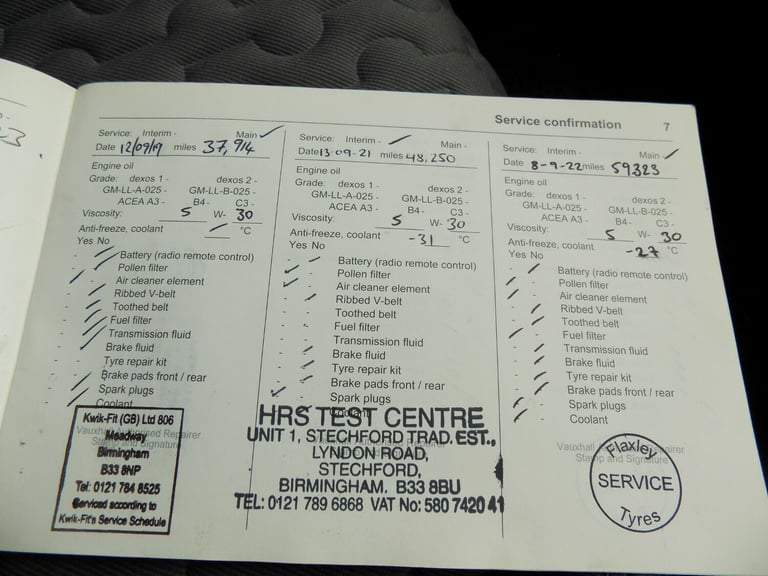 Service confirmation 7
Service: Interim - Main -
Date 12/09/19 miles 37,914
Engine oil
Grade: dexos 1 - dexos 2 -
GM-LL-A-025 - GM-LL-B-025 -
ACEA A3 - B4- C3 -
Viscosity: 5 W- 30
Anti-freeze, coolant °C
Yes No
- - Battery (radio remote control)
- - Pollen filter
- - Air cleaner element
- - Ribbed V-belt
- - Toothed belt
- - Fuel filter
- - Transmission fluid
- - Brake fluid
- - Tyre repair kit
- - Brake pads front / rear
- - Spark plugs
- - Coolant
Vauxhall Authorised Repairer
Stamp and Signature
Kwik-Fit (GB) Ltd 806
Meadway
Birmingham
B33 8NP
Tel: 0121 784 8525
Serviced according to
Kwik-Fit's Service Schedule
Service: Interim - Main -
Date 13-09-21 miles 48,250
Engine oil
Grade: dexos 1 - dexos 2 -
GM-LL-A-025 - GM-LL-B-025 -
ACEA A3 - B4- C3 -
Viscosity: 5 W- 30
Anti-freeze, coolant -31 °C
Yes No
- - Battery (radio remote control)
- - Pollen filter
- - Air cleaner element
- - Ribbed V-belt
- - Toothed belt
- - Fuel filter
- - Transmission fluid
- - Brake fluid
- - Tyre repair kit
- - Brake pads front / rear
- - Spark plugs
- - Coolant
HRS TEST CENTRE
UNIT 1, STECHFORD TRAD. EST.,
LYNDON ROAD,
STECHFORD,
BIRMINGHAM. B33 8BU
TEL: 0121 789 6868 VAT No: 580 7420 41
Service: Interim - Main -
Date 8-9-22 miles 59323
Engine oil
Grade: dexos 1 - dexos 2 -
GM-LL-A-025 - GM-LL-B-025 -
ACEA A3 - B4- C3 -
Viscosity: 5 W- 30
Anti-freeze, coolant -27 °C
Yes No
- - Battery (radio remote control)
- - Pollen filter
- - Air cleaner element
- - Ribbed V-belt
- - Toothed belt
- - Fuel filter
- - Transmission fluid
- - Brake fluid
- - Tyre repair kit
- - Brake pads front / rear
- - Spark plugs
- - Coolant
Vauxhall Repairer
Stamp and Signature
Flaxley
SERVICE
Tyres